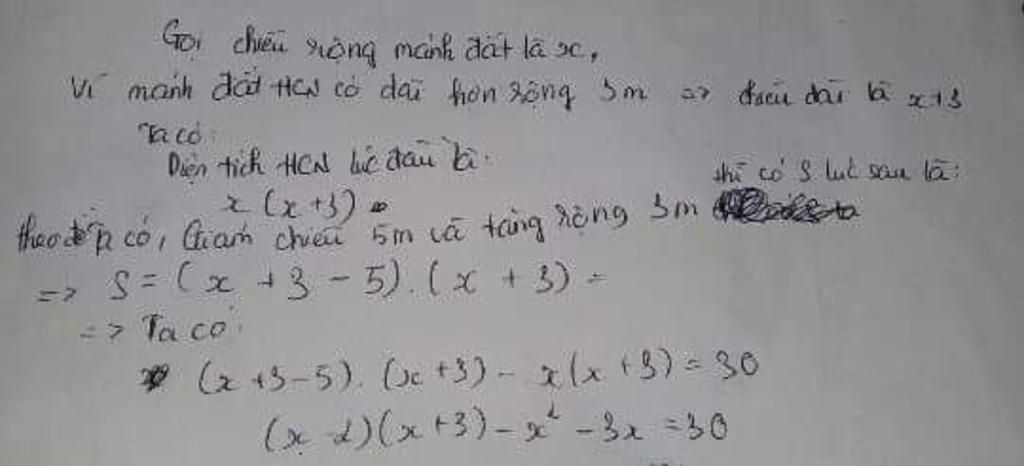 Gọi chiều rộng mảnh đất là x,
Vì mảnh đất HCN có dài hơn rộng 3m => chiều dài là x+3
Ta có:
Diện tích HCN lúc đầu là:
x(x+3)
theo đề có, Giảm chiều 5m và tăng rộng 3m thì có S lúc sau là:
=> S=(x+3-5).(x+3)=
=> Ta có:
(x+3-5).(x+3)-x(x+3)=30
(x-2)(x+3)-x²-3x=30